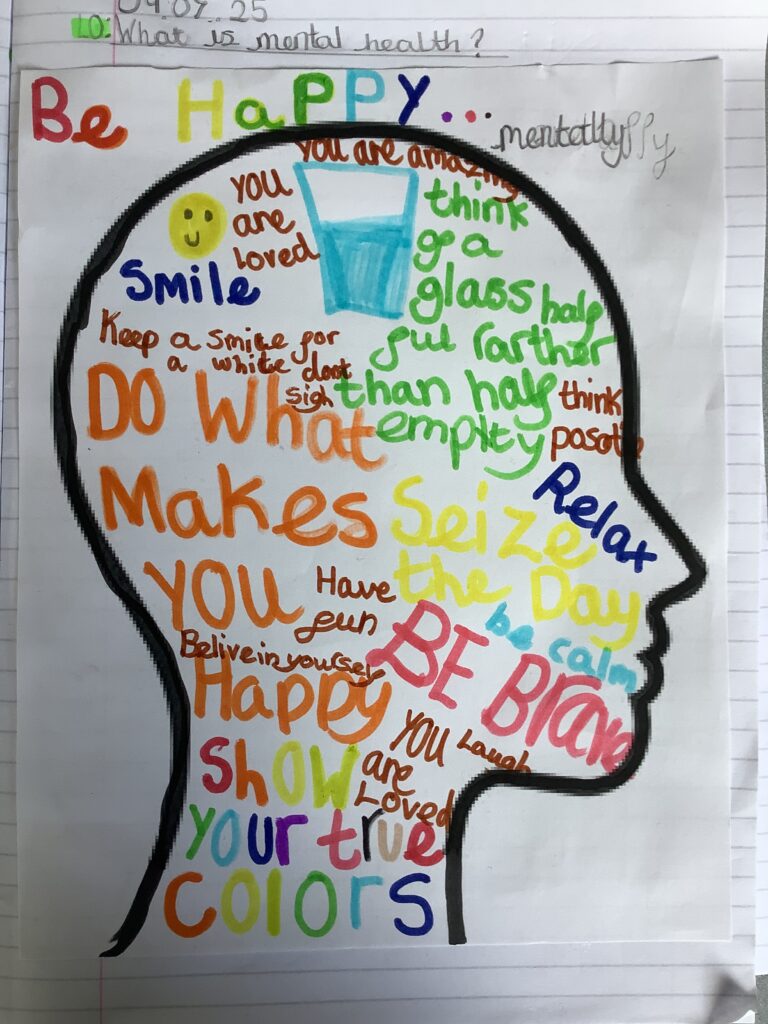 04.09.25
LO: What is mental health?
Be Happy...
mentally
You are amazing
You
are
loved
think
go a
glass half
full rarther
than half
emplty
Smile
Keep a smile for
a white
sigh
think
DO What
Makes
You
Happy
Relax
Seize
the Day
Have
fun
be calm
BE Brave
Belive in yourself
You
are
Loved
Laugh
Show
your true
Colors